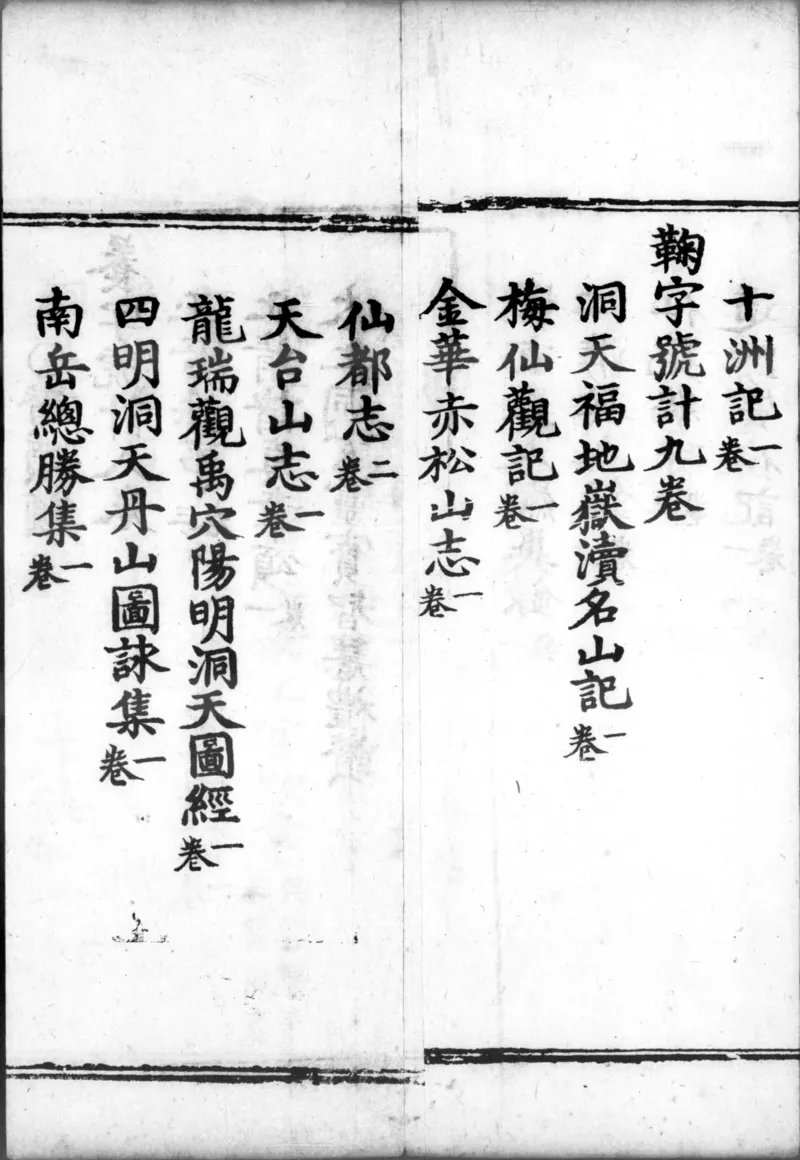 十洲記一卷
鞠字號計九卷
洞天福地嶽瀆名山記一卷
梅仙觀記一卷
金華赤松山志一卷
仙都志二卷
天台山志一卷
龍瑞觀禹穴陽明洞天圖經一卷
四明洞天丹山圖詠集一卷
南岳總勝集一卷